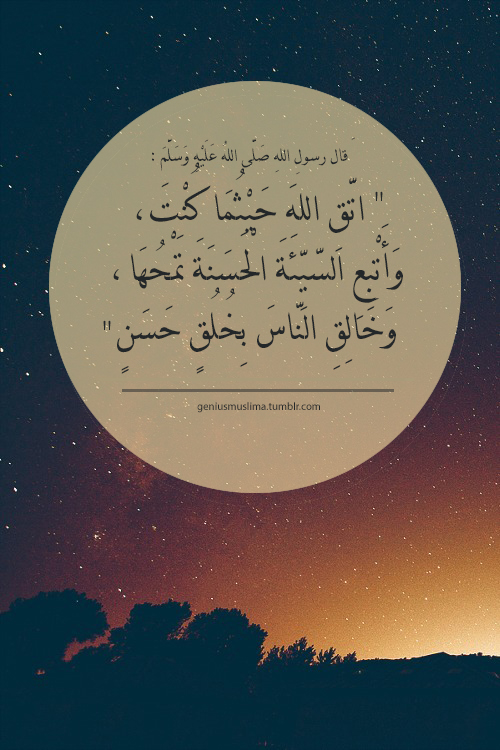 قال رسول اللهِ صَلَّى اللهُ عَلَيْهِ وَسَلَّمَ :
" اتَّقِ اللهَ حَيْثُمَا كُنْتَ ،
وَأَتْبِعِ السَّيِّئَةَ الْحَسَنَةَ تَمْحُهَا ،
وَخَالِقِ النَّاسَ بِخُلُقٍ حَسَنٍ "
geniusmuslima.tumblr.com